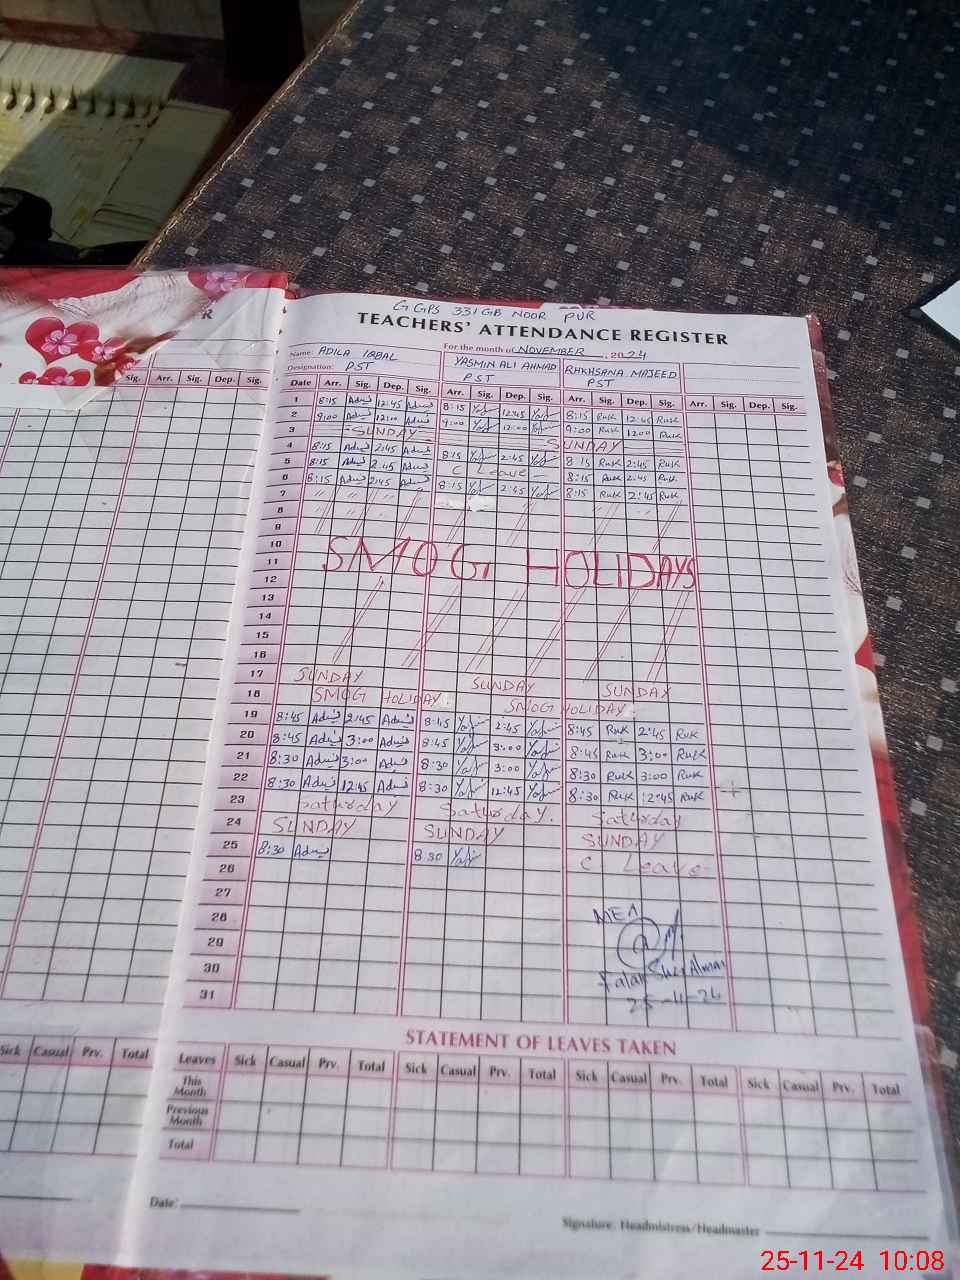 R
G GPS 331 GB NOOR PUR
TEACHERS' ATTENDANCE REGISTER
For the month of NOVEMBER, 2024
Name: ADILA IQBAL YASMIN ALI AHMAD RHKHSANA MAJEED
Designation: PST PST PST
Sig. Arr. Sig. Dep. Sig.
Date Arr. Sig. Dep. Sig. Arr. Sig. Dep. Sig. Arr. Sig. Dep. Sig. Arr. Sig. Dep. Sig.
1 8:15 12:45 8:15 12:45 8:15 Ruk 12:45 Ruk
2 9:00 12:00 9:00 12:00 9:00 Ruk 1200 Ruk
3 SUNDAY SUNDAY
4 8:15 2:45 8:15 2:45 8:15 Ruk 2:45 Ruk
5 8:15 2:45 C Leave 8:15 Ruk 2:45 Ruk
6 8:15 2:45 8:15 2:45 8:15 Ruk 2:45 Ruk
7
8
9
10
11 SMOG HOLIDAYS
12
13
14
15
16
17 SUNDAY SUNDAY SUNDAY
18 SMOG HOLIDAY. SMOG HOLIDAY.
19 8:45 2:45 8:45 2:45 8:45 Ruk 2:45 Ruk
20 8:45 3:00 8:45 3:00 8:45 Ruk 3:00 Ruk
21 8:30 3:00 8:30 3:00 8:30 Ruk 3:00 Ruk
22 8:30 12:45 8:30 12:45 8:30 Ruk 12:45 Ruk
23 Saturday Saturday. Saturday
24 SUNDAY SUNDAY SUNDAY
25 8:30 8:30 C Leave
26
27
28 MEA
29
30
31 25-11-24
STATEMENT OF LEAVES TAKEN
Sick Casual Prv. Total
Leaves Sick Casual Prv. Total Sick Casual Prv. Total Sick Casual Prv. Total Sick Casual Prv. Total
This Month
Previous Month
Total
Date:
Signature: Headmistress/Headmaster
25-11-24 10:08